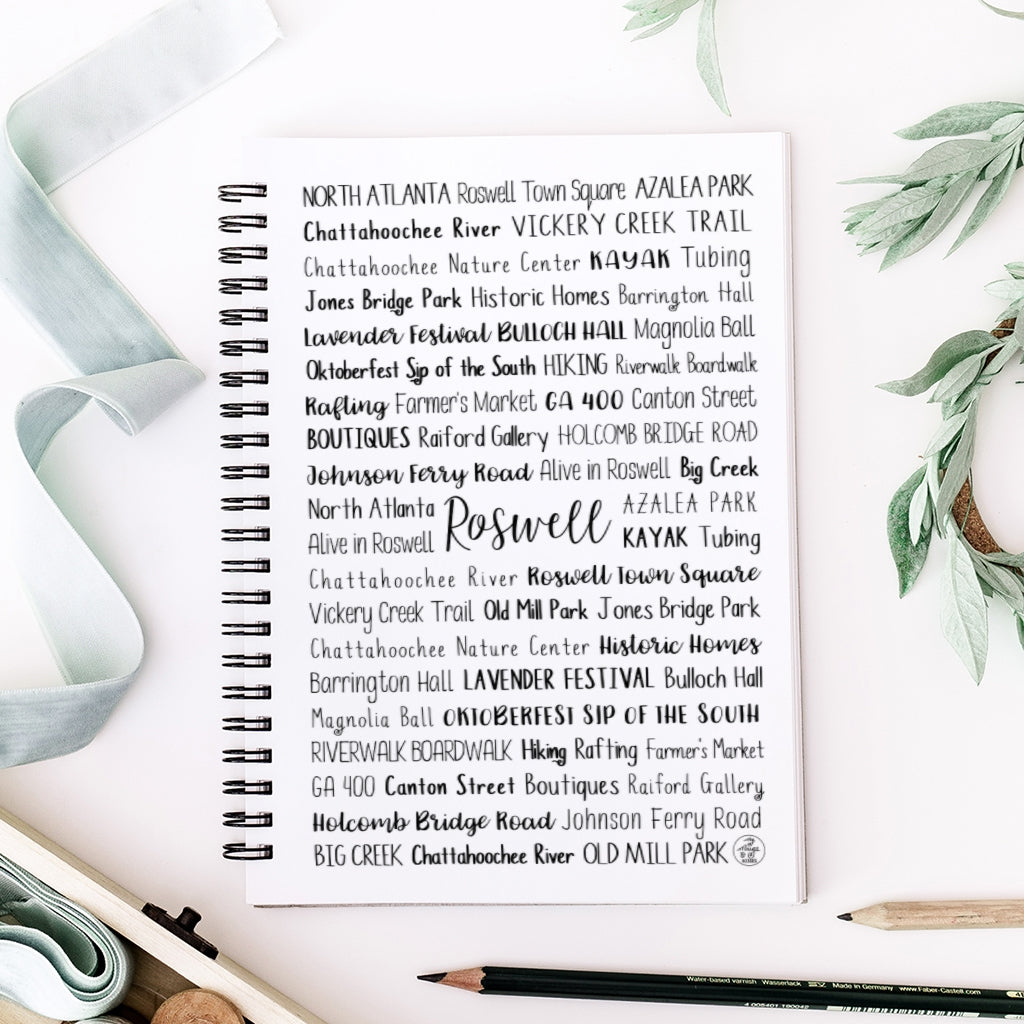 NORTH ATLANTA Roswell Town Square AZALEA PARK
Chattahoochee River VICKERY CREEK TRAIL
Chattahoochee Nature Center KAYAK Tubing
Jones Bridge Park Historic Homes Barrington Hall
Lavender Festival BULLOCH HALL Magnolia Ball
Oktoberfest Sip of the South HIKING Riverwalk Boardwalk
Rafting Farmer's Market GA 400 Canton Street
BOUTIQUES Raiford Gallery HOLCOMB BRIDGE ROAD
Johnson Ferry Road Alive in Roswell Big Creek
North Atlanta
Alive in Roswell
Roswell
AZALEA PARK
KAYAK Tubing
Chattahoochee River Roswell Town Square
Vickery Creek Trail Old Mill Park Jones Bridge Park
Chattahoochee Nature Center Historic Homes
Barrington Hall LAVENDER FESTIVAL Bulloch Hall
Magnolia Ball OKTOBERFEST SIP OF THE SOUTH
RIVERWALK BOARDWALK Hiking Rafting Farmer's Market
GA 400 Canton Street Boutiques Raiford Gallery
Holcomb Bridge Road Johnson Ferry Road
BIG CREEK Chattahoochee River OLD MILL PARK
Water-based varnish Wasserlack Made in Germany www.Faber-Castell.com
4 005401 190042